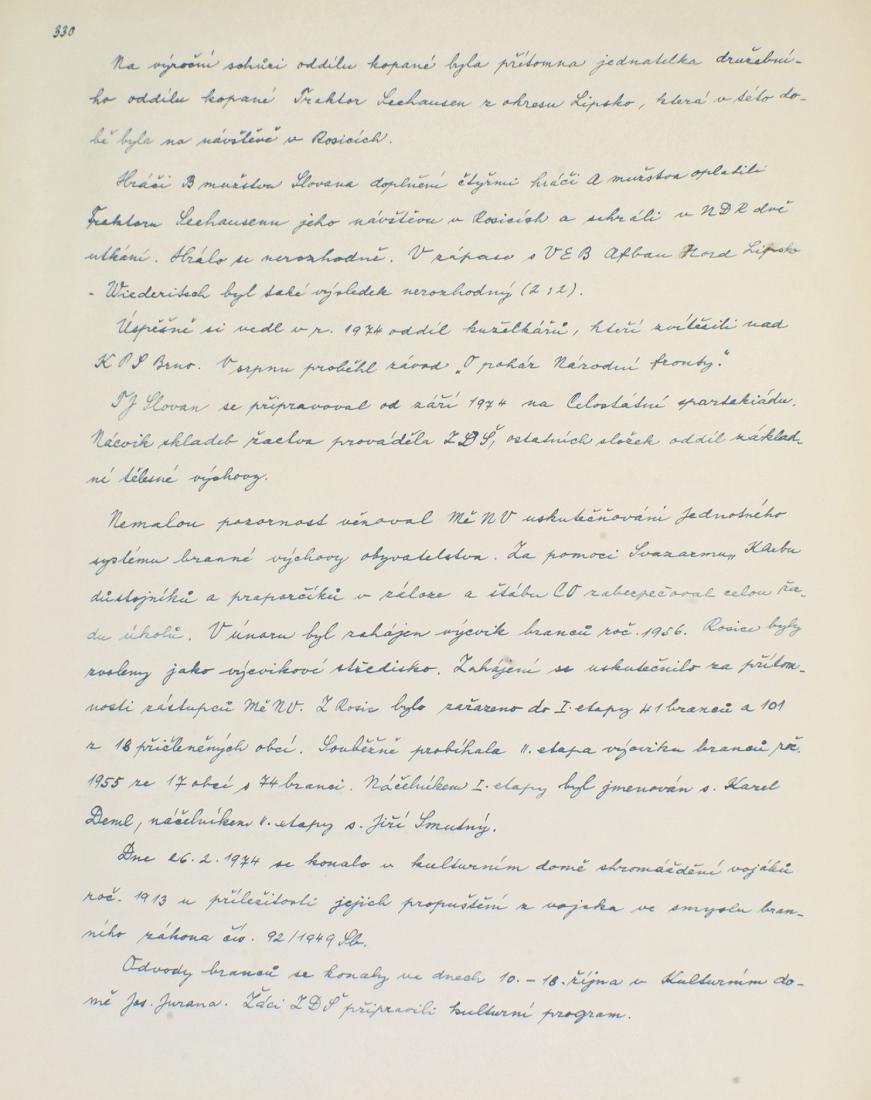 330
Na výroční schůzi oddílu kopané byla přítomna jednatelka družební-
ho oddílu kopané Traktor Seehausen z okresu Lipsko, která v této do-
bě byla na návštěvě v Rosicích.
Hráči B mužstva Slovana doplnění čtyřmi hráči A mužstva oplatili
Traktoru Seehausenu jeho návštěvu v Rosicích a sehráli v NDR dvě
utkání. Hrálo se nerozhodně. V zápase s VEB Afbau Nord Lipsko
- Wiederitsch byl také výsledek nerozhodný (2:2).
Úspěšně si vedl v r. 1974 oddíl kuželkářů, kteří zvítězili nad
KPS Brno. V srpnu proběhl závod „O pohár Národní fronty."
TJ Slovan se připravoval od září 1974 na Celostátní spartakiádu.
Nácvik skladeb žactva prováděla ZDŠ, ostatních složek oddíl základ-
ní tělesné výchovy.
Nemalou pozornost věnoval MěNV uskutečňování Jednotného
systému branné výchovy obyvatelstva. Za pomoci Svazarmu, Klubu
důstojníků a praporčíků v záloze a štábu CO zabezpečoval celou řa-
du úkolů. V únoru byl zahájen výcvik branců roč. 1956. Rosice byly
zvoleny jako výcvikové středisko. Zahájení se uskutečnilo za přítom-
nosti zástupců MěNV. Z Rosic bylo zařazeno do I. etapy 41 branců a 101
z 18 přičleněných obcí. Souběžně probíhala II. etapa výcviku branců roč.
1955 ze 17 obcí s 74 branci. Náčelníkem I. etapy byl jmenován s. Karel
Deml, náčelníkem II. etapy s. Jiří Smutný.
Dne 26. 2. 1974 se konalo v kulturním domě shromáždění vojáků
roč. 1913 u příležitosti jejich propuštění z vojska ve smyslu bran-
ního zákona čís. 92/1949 Sb.
Odvody branců se konaly ve dnech 10. - 18. října v Kulturním do-
mě Jos. Jurana. Žáci ZDŠ připravili kulturní program.